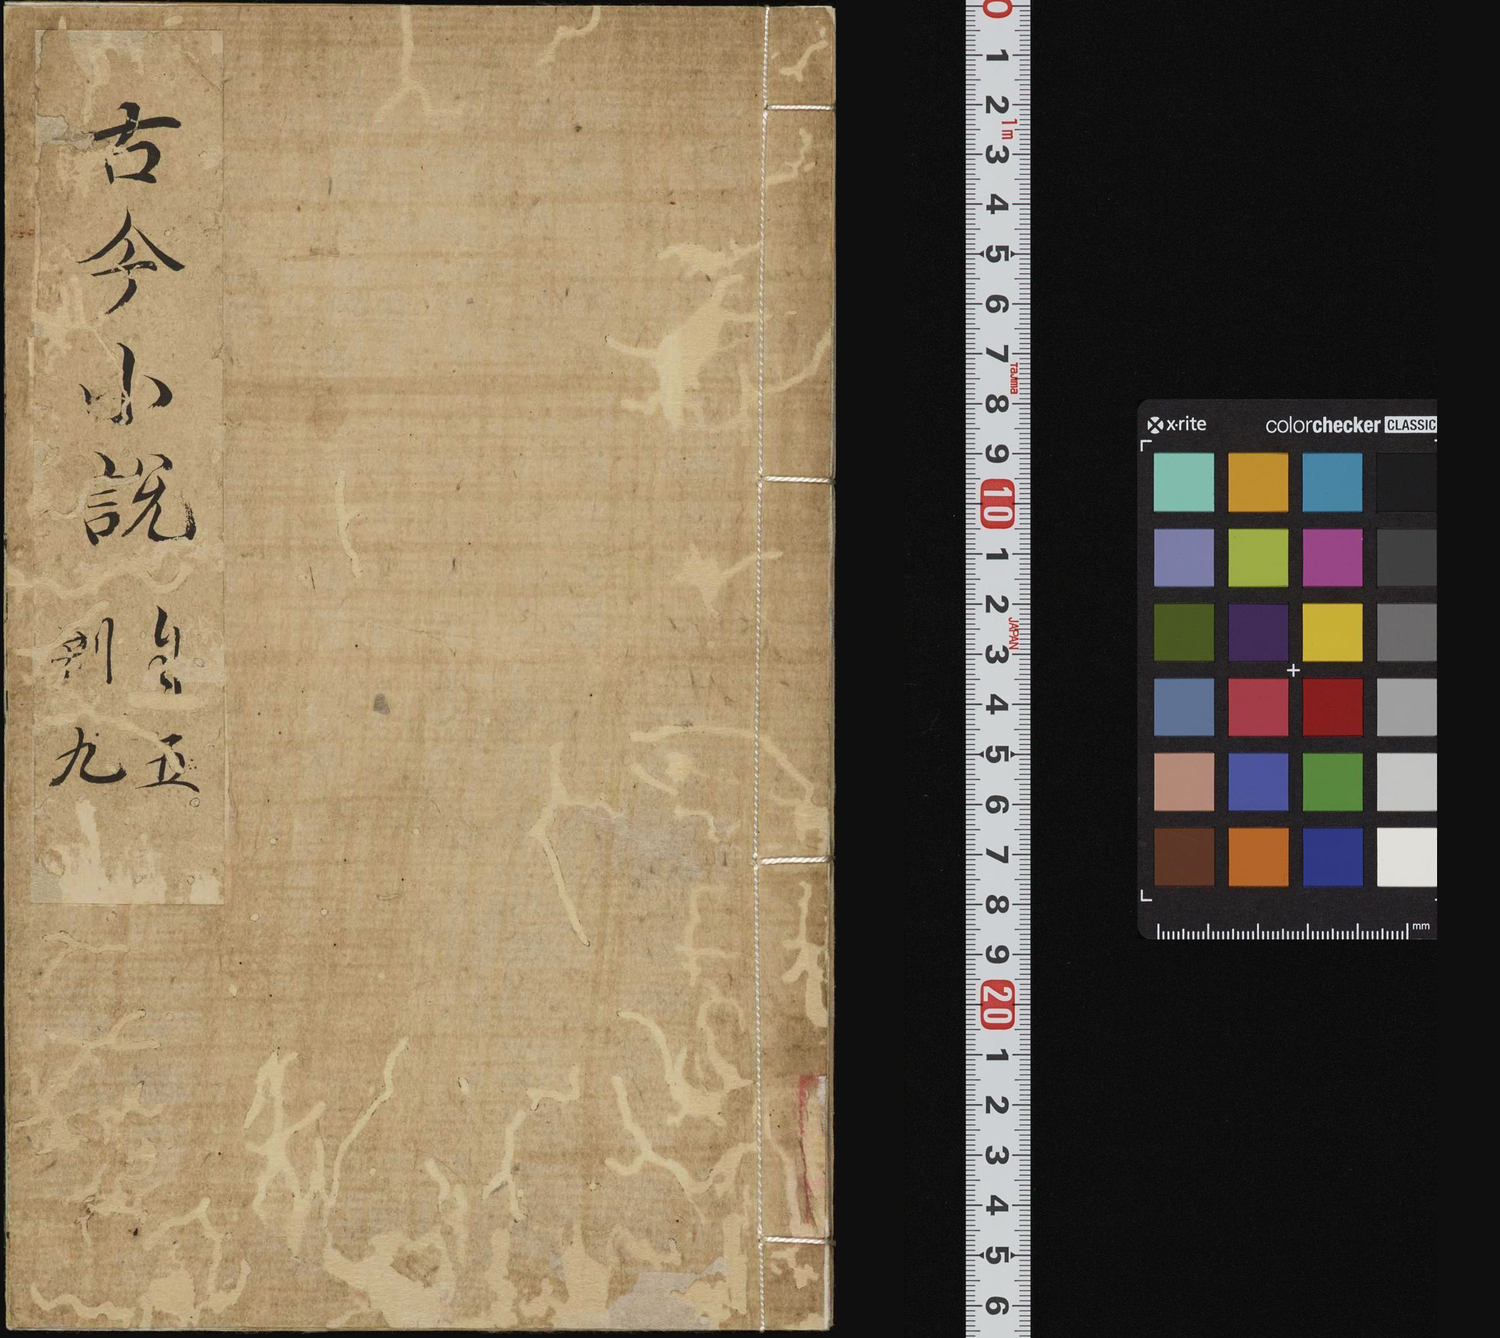 古今小説
自五
到九
0
1
2
1m
3
4
5
6
7
Tajima
8
9
10
1
2
JAPAN
3
4
5
6
7
8
9
20
1
2
3
4
5
6
x-rite
colorchecker CLASSIC
mm